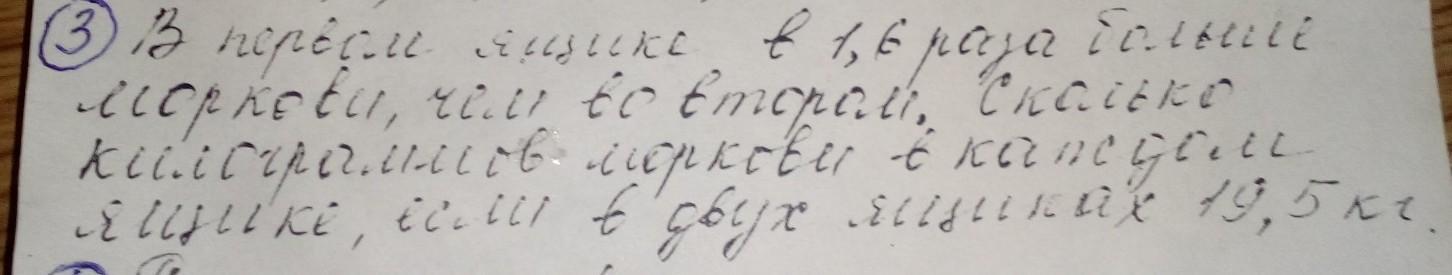 3 В первом ящике в 1,6 раза больше
моркови, чем во втором. Сколько
килограммов моркови в каждом
ящике, если в двух ящиках 19,5 кг.